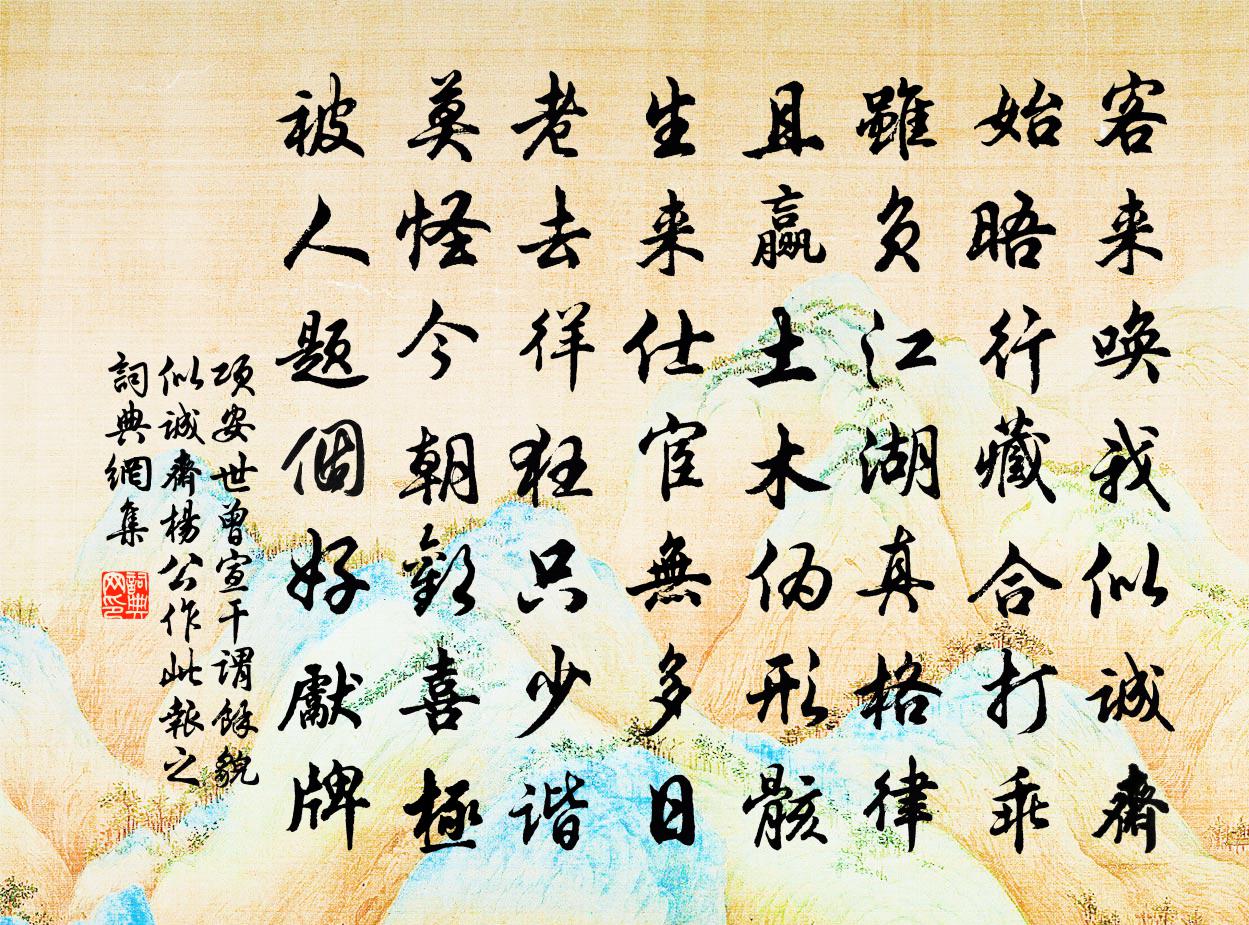 客来唤我似诚齋
始晤行藏合打乖
雖负江湖真格律
且赢土木伪形骸
生来仕宦無多日
老去徉狂只少谐
莫怪今朝歡喜極
被人题個好獻牌
项安世曾宣干谓馀貌
似诚齋楊公作此報之
詞典網集
詞典网印